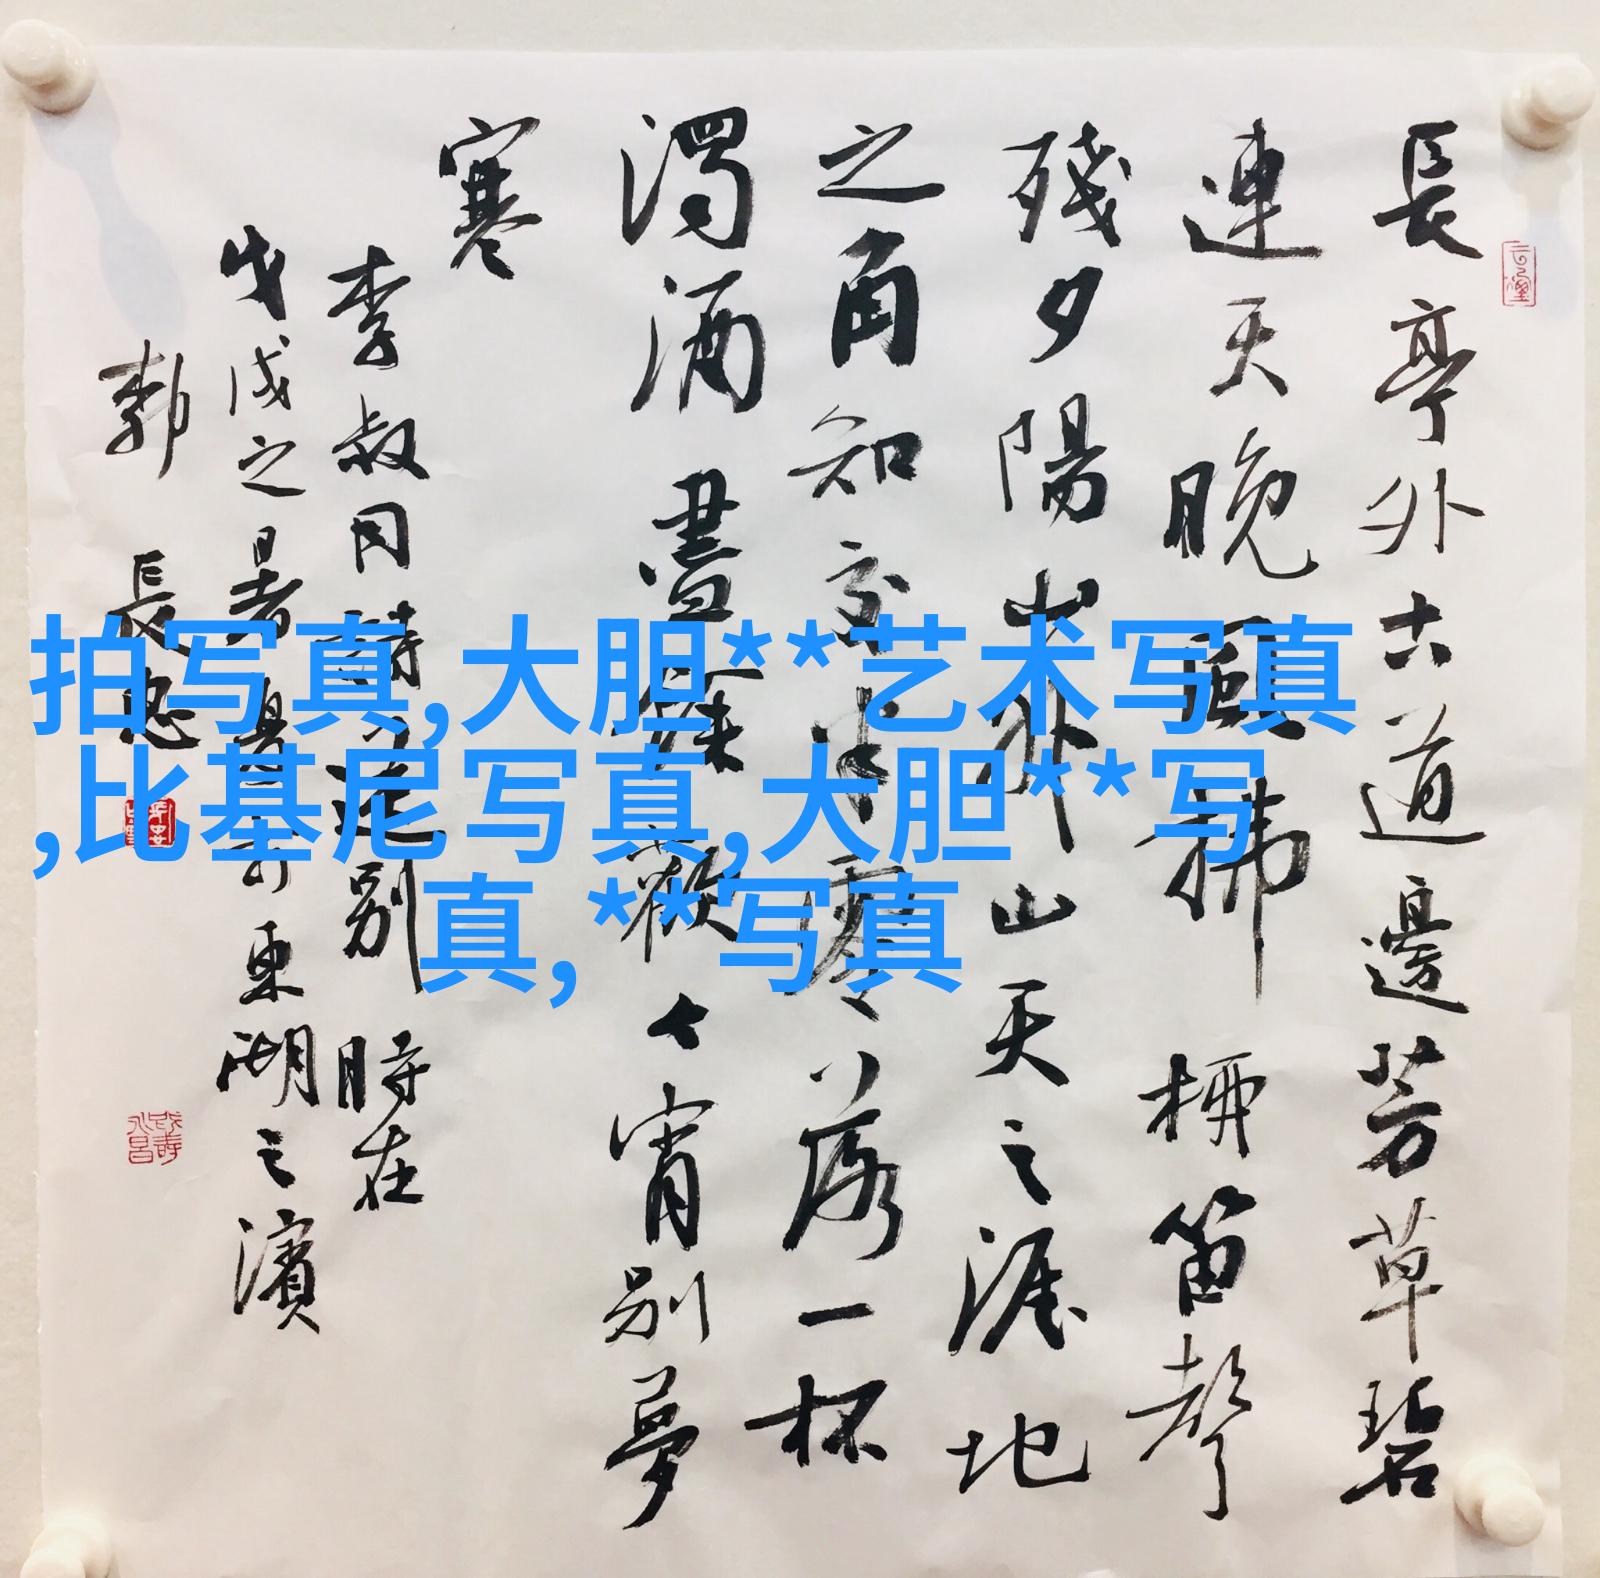 長亭外古道邊芳草碧
連天晚風拂柳笛聲
殘夕陽山外山天之涯地
之角知交半零落一杯
濁酒盡餘歡今宵別夢
寒
李叔同詩送別 時在
戊戌之暑月於東湖之濱
郭 長
拍写真,大胆**艺术写真
,比基尼写真,大胆**写
真,**写真